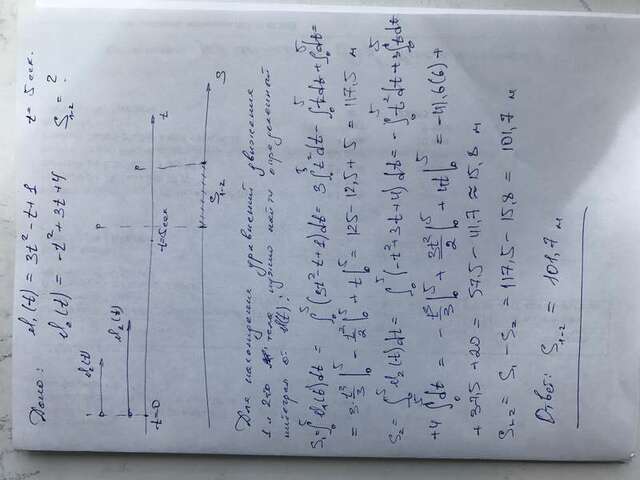 Дано: v₁(t) = 3t² - t + 1 t = 5 сек.
v₂(t) = -t² + 3t + 4 S₁₋₂ = ?
v₁(t)
v₂(t)
t=0 t=5сек t
S₁₋₂ S
Для нахождения уравнений движения
1 и 2го тела нужно найти определенный
интеграл от v(t):
S₁ = ∫₀⁵ v₁(t)dt = ∫₀⁵ (3t² - t + 1)dt = 3∫₀⁵ t²dt - ∫₀⁵ tdt + ∫₀⁵ dt =
= 3·t³/3 |₀⁵ - t²/2 |₀⁵ + t|₀⁵ = 125 - 12,5 + 5 = 117,5 м
S₂ = ∫₀⁵ v₂(t)dt = ∫₀⁵ (-t² + 3t + 4)dt = -∫₀⁵ t²dt + 3∫₀⁵ tdt
+ 4∫₀⁵ dt = -t³/3 |₀⁵ + 3t²/2 |₀⁵ + 4t|₀⁵ = -41,6(6) +
+ 37,5 + 20 = 57,5 - 41,7 ≈ 15,8 м
S₁₋₂ = S₁ - S₂ = 117,5 - 15,8 = 101,7 м
Ответ: S₁₋₂ = 101,7 м